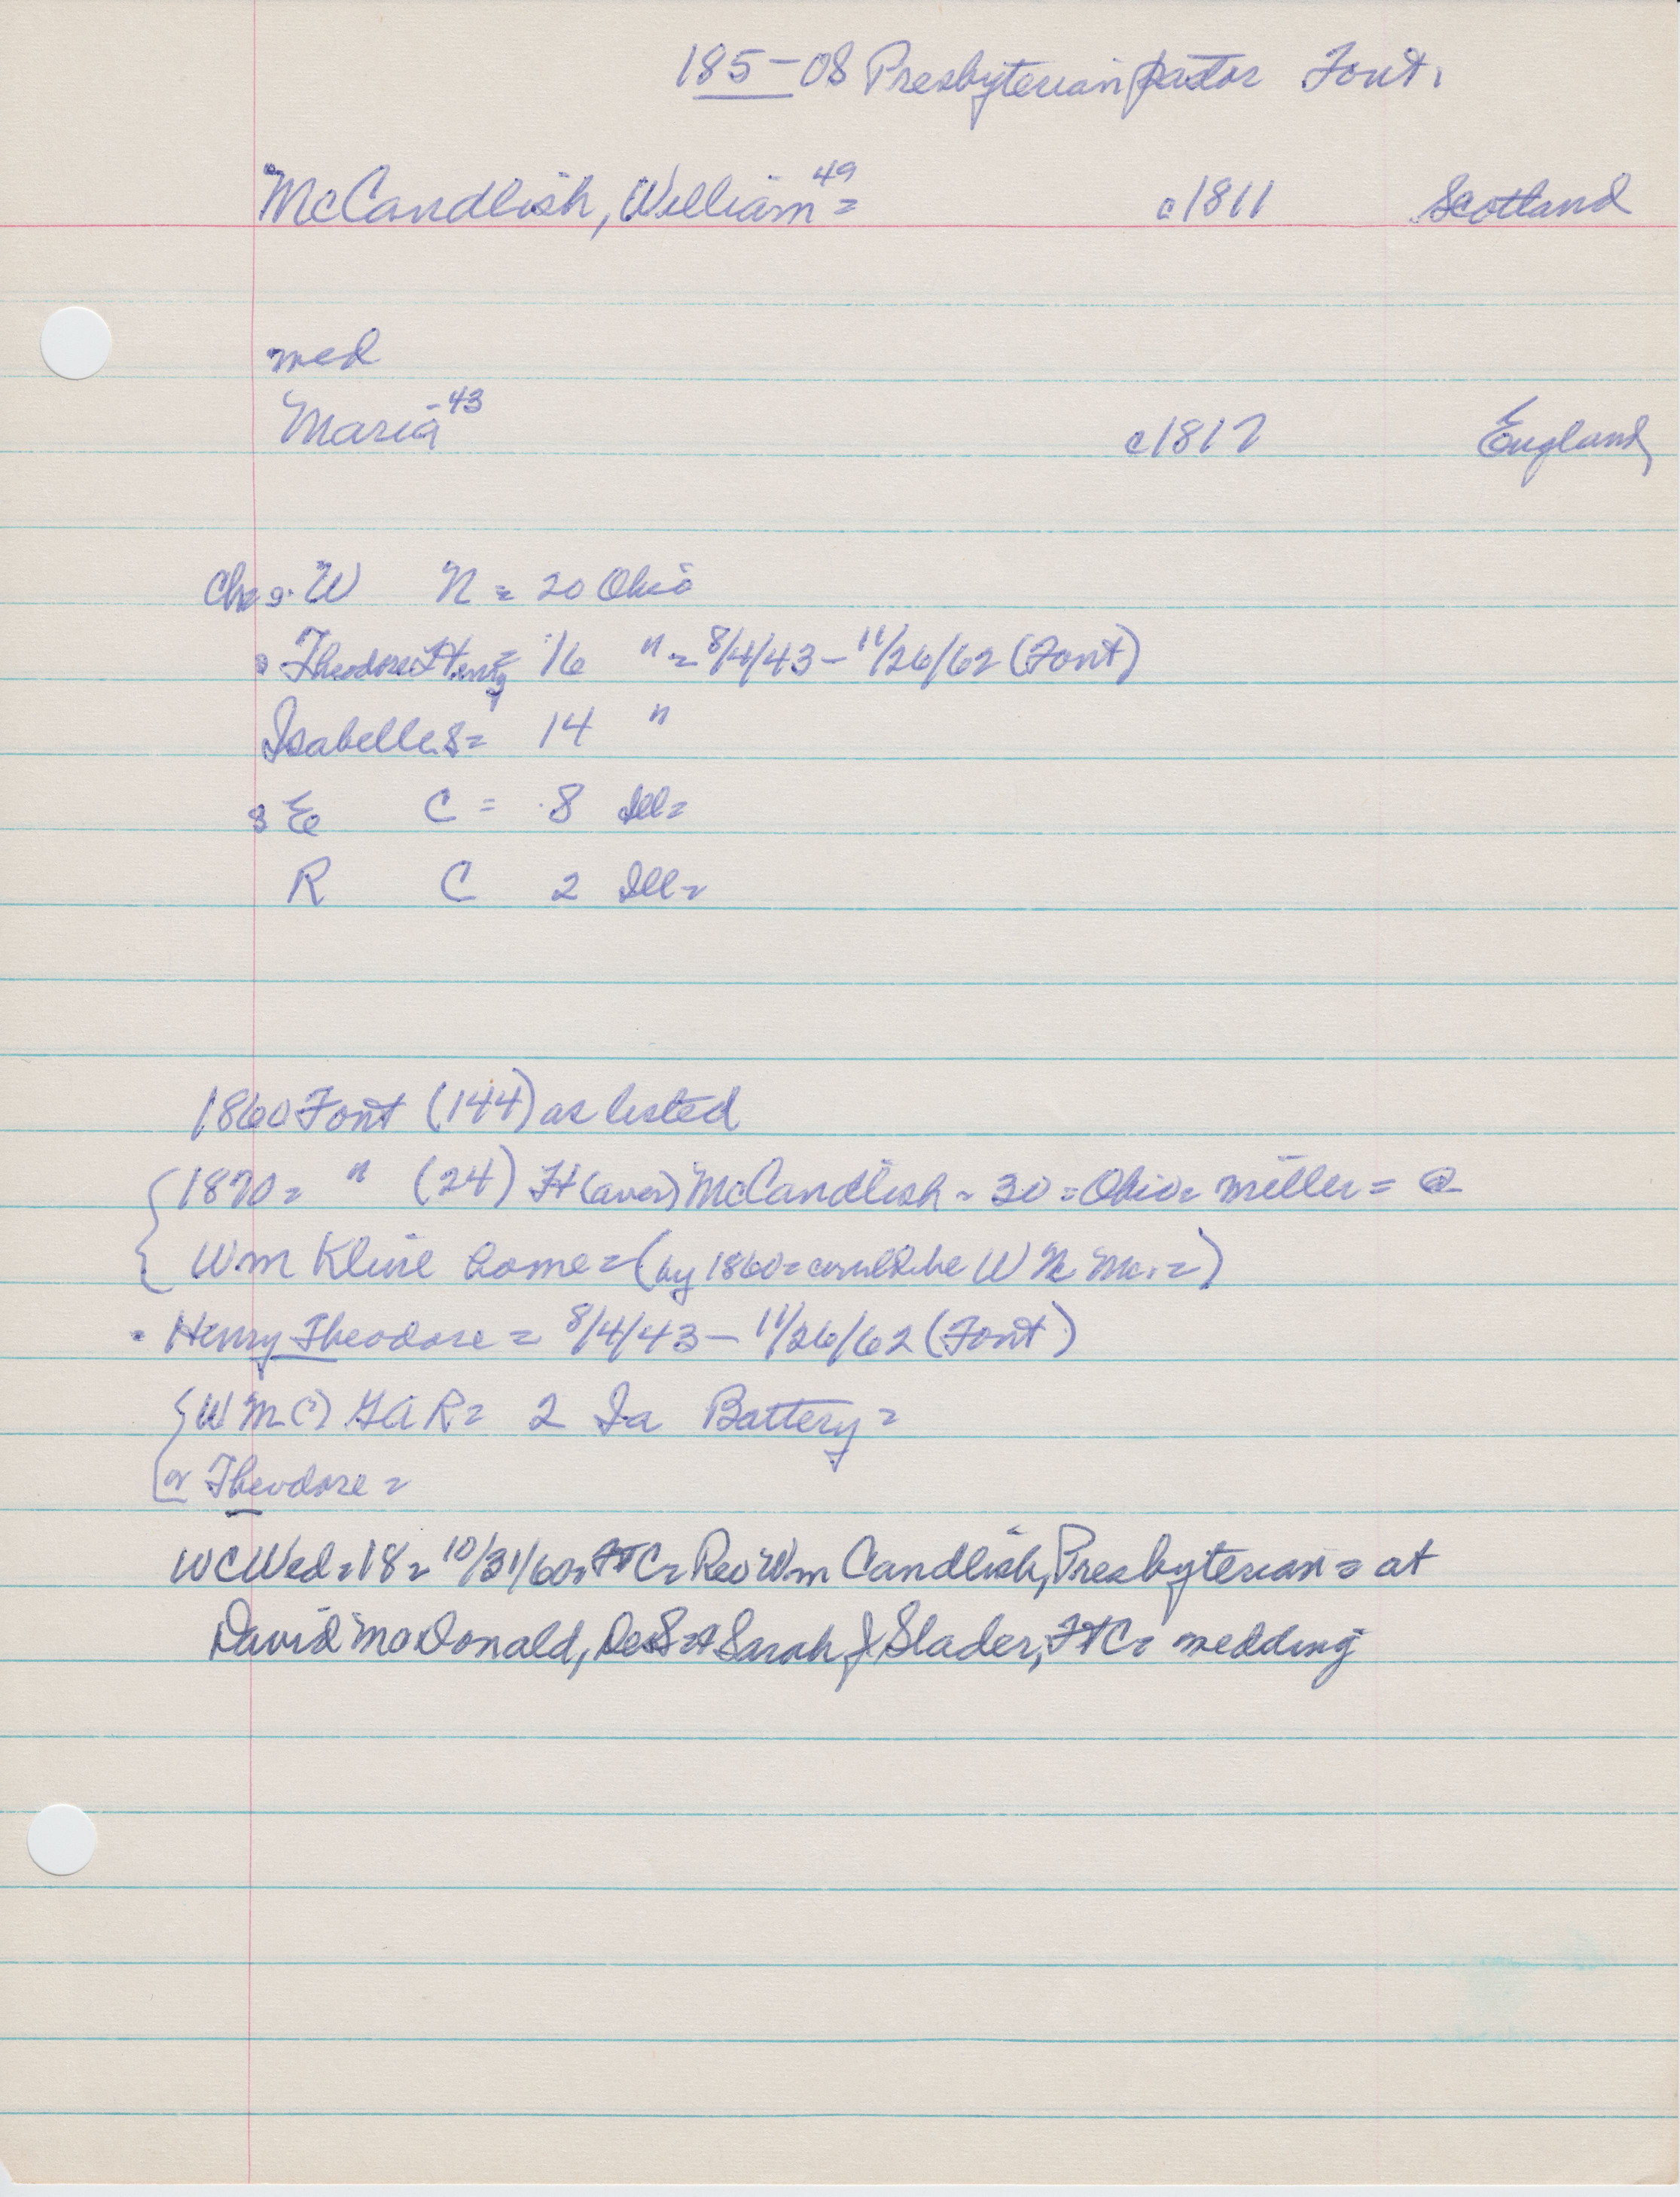 185–08 Presbyterian pastor Font.
McCandlish, William 49 = c1811 Scotland
med
Maria -43 c1817 England
Chn W N = 20 Ohio
Theodore Henry = 16 " = 8/4/43 – 11/26/62 (Font)
Isabelle S = 14 "
E C = 8 Ill =
R C 2 Ill =
1860 Font (144) as listed
1870 = " (24) H McCandlish - 30 = Ohio = miller = @
Wm Kline home = (by 1860 = could be W N Mc. =)
• Henry Theodore = 8/4/43 – 11/26/62 (Font)
W M C (?) GAR = 2 Ia Battery =
or Theodore =
WCWed = 18 = 10/31/60 = FtC = Rev Wm Candlish, Presbyterian = at
David McDonald, DesS + Sarah J Slader, FtC = wedding